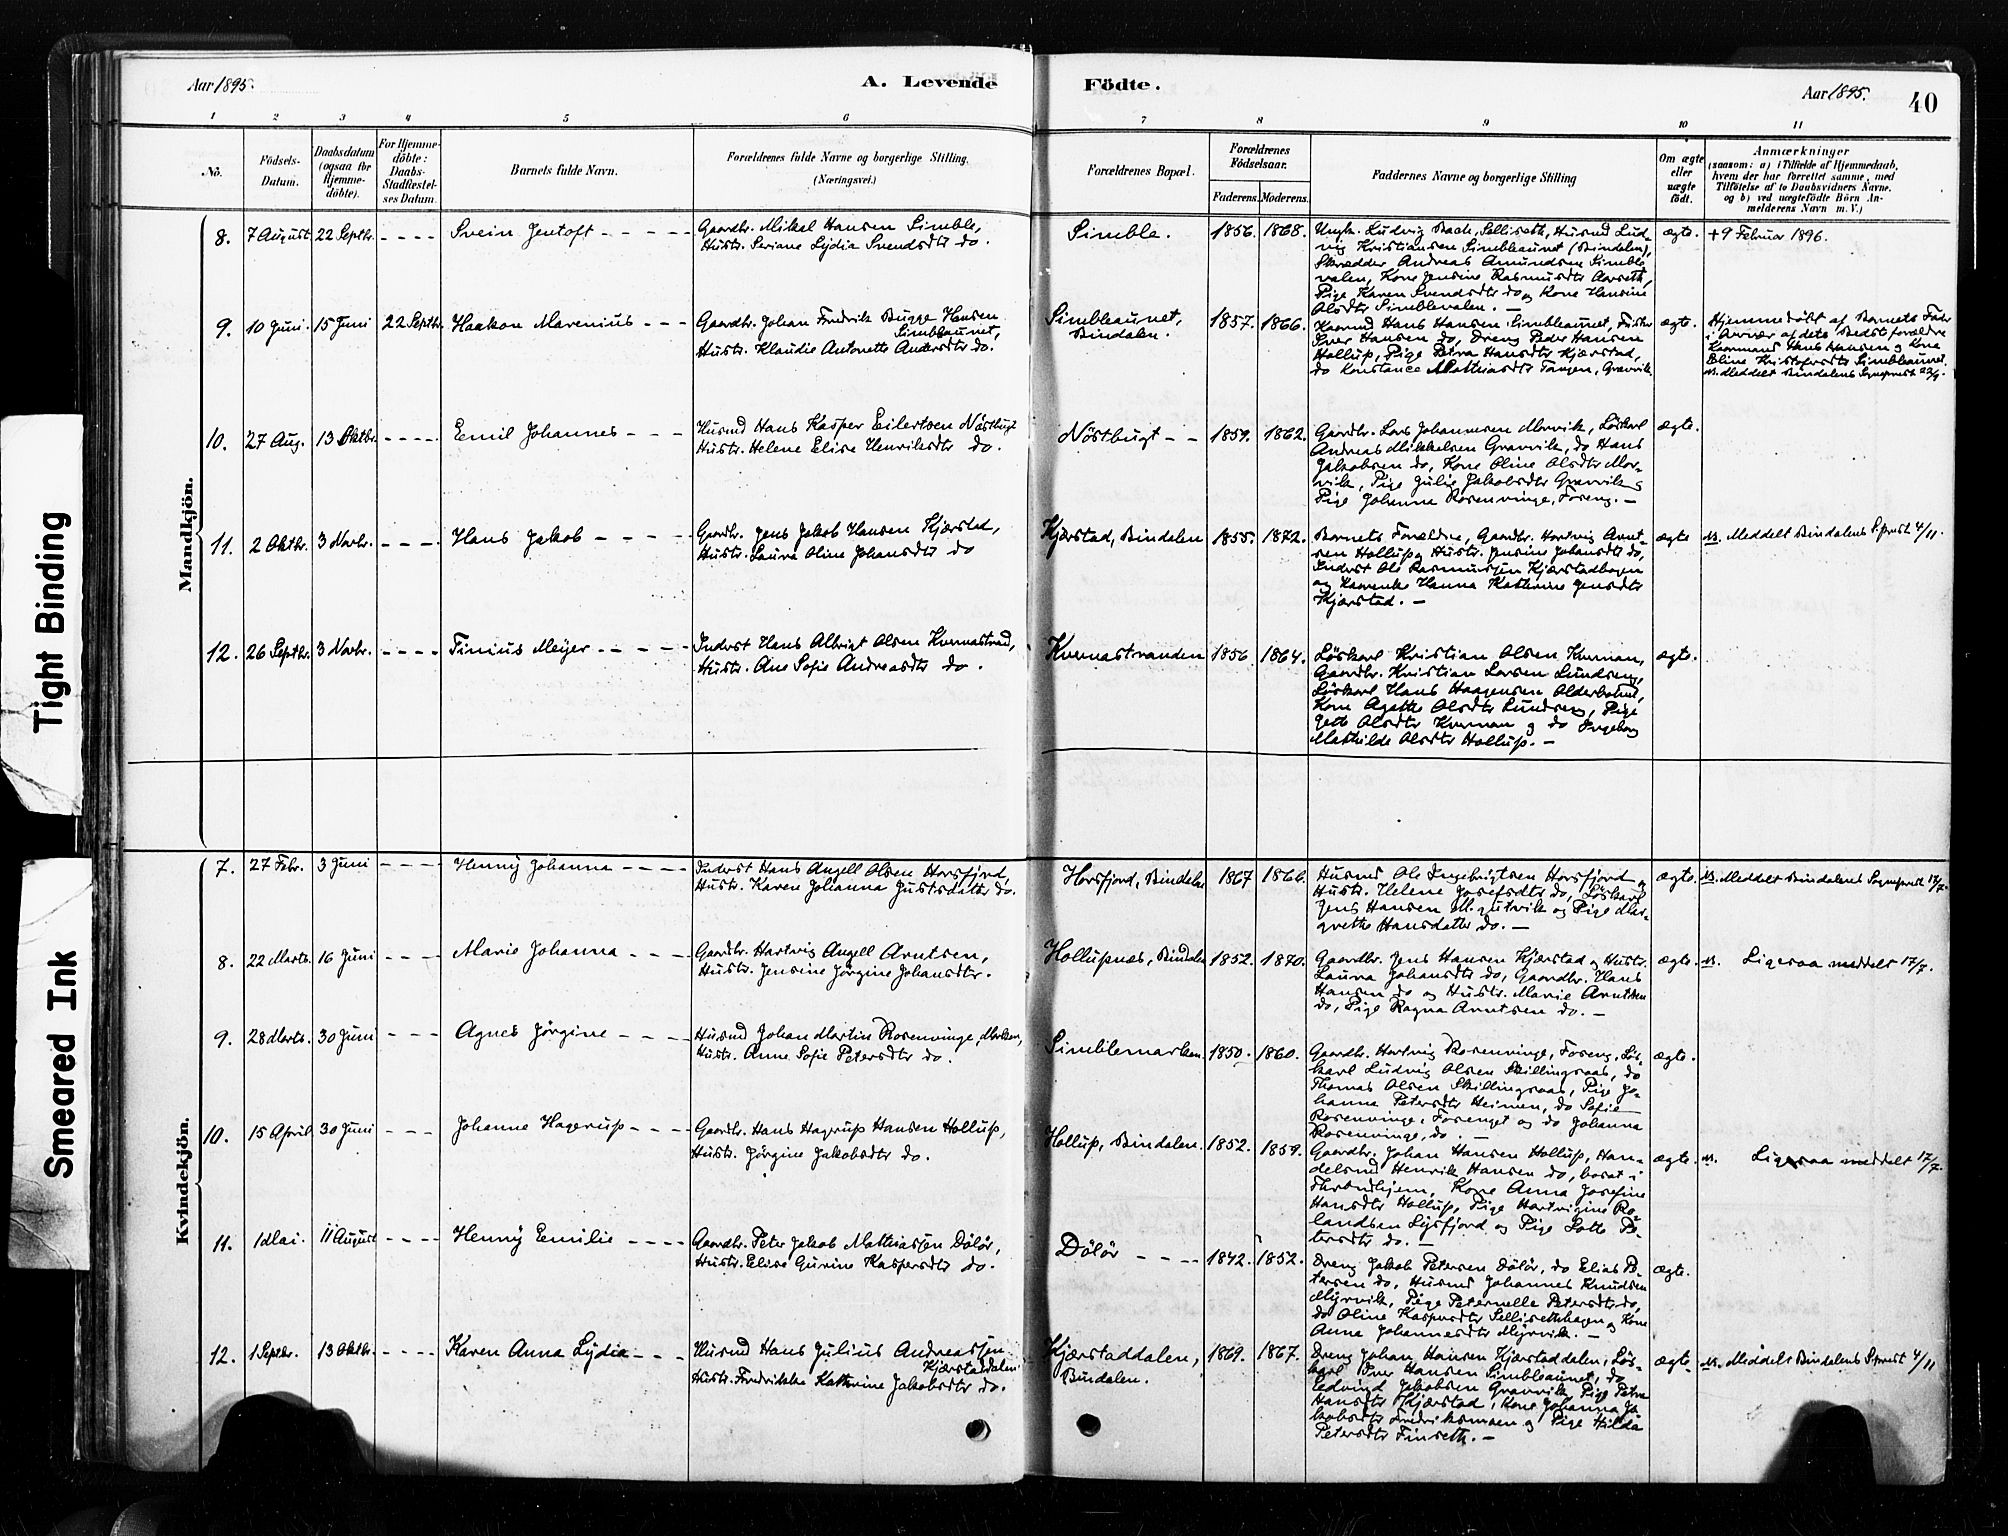 Aar 1895.
A. Levende
Födte.
Aar 1895.
40
1 2 3 4 5 6 7 8 9 10 11
No.
Födsels-
Datum.
Daabsdatum
(ogsaa for
Hjemme-
döbte).
For Hjemme-
döbte:
Daabs-
Stadfæstel-
ses Datum.
Barnets fulde Navn.
Forældrenes fulde Navne og borgerlige Stilling.
(Næringsvei.)
Forældrenes Bopæl.
Forældrenes
Födselsaar.
Faderens. Moderens.
Faddernes Navne og borgerlige Stilling
Om ægte
eller
uægte
födt.
Anmærkninger
(saasom: a) i Tilfælde af Hjemmedaab,
hvem der har forrettet samme, med
Tilföielse af to Daabsvidners Navne.
og b) ved uægtefödte Börn An-
melderens Navn m. V.)
Mandkjön.
8. 7 August 22 Septbr. - - - - Svein Jentoft - - - - -
Gaardbr. Mikal Hansen Simble,
Hustr. Seriane Lydia Svendsdtr do.
Simble. 1856. 1868.
Ungk. Ludvig Bach, Selliseth, Husmd Lud-
vig Kristiansen Simbleaunet (Bindalen),
Skrædder Andreas Amundsen Simble
valen, Kone Jensine Rasmusdtr Aarseth,
Pige Karen Svendsdtr do og Kone Hansine
Olsdtr Simblevalen. —
ægte. + 9 Februar 1896.
9. 10 Juni. 15 Juni 22 Septbr. Haakon Marenius - - -
Gaardbr. Johan Fredrik Bugge Hansen
Simbleaunet,
Hustr. Klaudia Antonette Andersdtr do.
Simbleaunet,
Bindalen.
1857. 1866.
Kaarmd Hans Hansen Simbleaunet, Fisker
Iver Hansen do, Dreng Peder Hansen
Hollup, Pige Petra Hansdtr Kjærstad,
do Konstance Mathiasdtr Tangen, Gravvik.
ægte.
Hjemmedöbt af Barnets Fader
i Nærvær af dets Bedsteforældre
Kaarmand Hans Hansen og Kone
Eline Kristofersdtr Simbleaunet.
NB. Meddelt Bindalens Sogneprest 22/9.
10. 27 Aug. 13 Oktbr. - - - - Emil Johannes - - -
Husmd Hans Kasper Eilertsen Nöstbugt
Hustr. Helene Elisa Henriksdtr do.
Nöstbugt - - 1859. 1862.
Gaardbr. Lars Johannesen Morvik, Löskarl
Andreas Mikkelsen Gravvik, do Hans
Jakobsen do, Kone Oline Olsdtr Mor-
vik, Pige Julie Jakobsdtr Gravvik og
Pige Johanna Rosenvinge, Foreng. —
ægte.
11. 2 Oktbr. 3 Novbr. - - - - Hans Jakob - - - - -
Gaardbr. Jens Jakob Hansen Kjærstad,
Hustr. Laura Oline Johansdtr do
Kjærstad, Bindalen 1855. 1872.
Barnets Forældre, Gaardbr. Hartvig Arnt-
sen Hollup og Hustr. Jensine Johansdtr do,
Inderst Ole Rasmussen Kjærstadhagen
og Kaarenke Hanna Kathrine Jensdtr
Kjærstad. —
ægte NB. Meddelt Bindalens S.prest 4/11.
12. 26 Septbr. 3 Novbr. - - - - Tinius Meyer - - - - -
Inderst Hans Albrigt Olsen Kvernastrand,
Hustr. Ane Sofie Andreasdtr do.
Kvernastranden 1856 1864.
Löskarl Kristian Olsen Kvernan,
Gaardbr. Kristian Larsen Lundseng,
Löskarl Hans Haagensen Alderholmt,
Kone Agathe Olsdtr Lundseng, Pige
Jette Olsdtr Kvernan og do Ingeborg
Mathilde Olsdtr Hollup. —
ægte.
Kvindekjön.
7. 27 Febr. 3 Juni - - - - Henny Johanna - - - -
Inderst Hans Angell Olsen Horsfjord,
Hustr. Karen Johanna Justsdatter do.
Horsfjord, Bindalen 1867 1866.
Husmd Ole Ingebrigtsen Horsfjord og
Hustr. Helene Josefsdtr do, Löskarl
Jens Hansen vik og Pige Mar-
grethe Hansdatter do. —
ægte. NB. Meddelt Bindalens Sogneprest 17/7.
8. 22 Marts. 16 Juni - - - - Marie Johanna - - - -
Gaardbr. Hartvig Angell Arntsen,
Hustr. Jensine Jörgine Johansdtr.
Hollupnæs, Bindalen 1852. 1870.
Gaardbr. Jens Hansen Kjærstad og Hustr.
Laura Johansdtr do, Gaardbr. Hans
Hansen do og Hustr. Marie Arntsen
do, Pige Ragna Arntsen do. —
ægte. NB. Ligesaa meddelt 17/7.
9. 28 Marts. 30 Juni - - - Agnes Jörgine - - - -
Husmd Johan Martin Rosenvinge, Marken,
Hustr. Anne Sofie Petersdtr do.
Simblemarken. 1850. 1860.
Gaardbr. Hartvig Rosenvinge, Foreng, Lös-
karl Ludvig Olsen Skillingsaas, do
Thomas Olsen Skillingsaas, Pige Jo-
hanna Petersdtr Heimen, do Sofie
Rosenvinge, Forenget og do Johanna
Rosenvinge, do. —
ægte.
10. 15 April 30 Juni - - - Johanne Hagerup - - - -
Gaardbr. Hans Hagerup Hansen Hollup,
Hustr. Jörgine Jakobsdtr do.
Hollup, Bindalen. 1852. 1859.
Gaardbr. Johan Hansen Hollup, Han-
delsmd Henrik Hansen do, bosat i
Throndhjem, Kone Anna Josefine
Hansdtr Hollup, Pige Hartvigine Ro-
landsen Lysfjord og Pige Lotte Pe-
tersdtr do. —
ægte. NB. Ligesaa meddelt 17/7.
11. 1 Mai. 11 August - - - - Henny Emilie - - - -
Gaardbr. Peter Jakob Mathiassen Dölör,
Hustr. Elise Gurine Kaspersdtr do.
Dölör - - - - 1842. 1852.
Dreng Jakob Petersen Dölör, do Elias Pe-
tersen do, Husmd Johannes Knudsen
Myrvik, Pige Peternelle Petersdtr do,
do Oline Kaspersdtr Sellisethhagen og Kone
Anna Johannesdtr Myrvik. —
ægte.
12. 1 Septbr. 13 Oktbr. - - - - Karen Anna Lydia - - -
Husmd Hans Julius Andreassen
Kjærstaddalen
Hustr. Fredrikke Kathrine Jakobsdtr do.
Kjærstaddalen,
Bindalen.
1869. 1867.
Dreng Johan Hansen Kjærstaddalen, Lös-
karl Iver Hansen Simbleaunet, do
Edvind Jakobsen Gravvik, Pige Petra
Hansdtr Kjærstad, Kone Johanna Ja-
kobsdtr Fredriksmoen og Pige Hilda
Petersdtr Finseth. —
ægte. NB. Meddelt Bindalens S.prest 4/11
Tight Binding
Smeared Ink